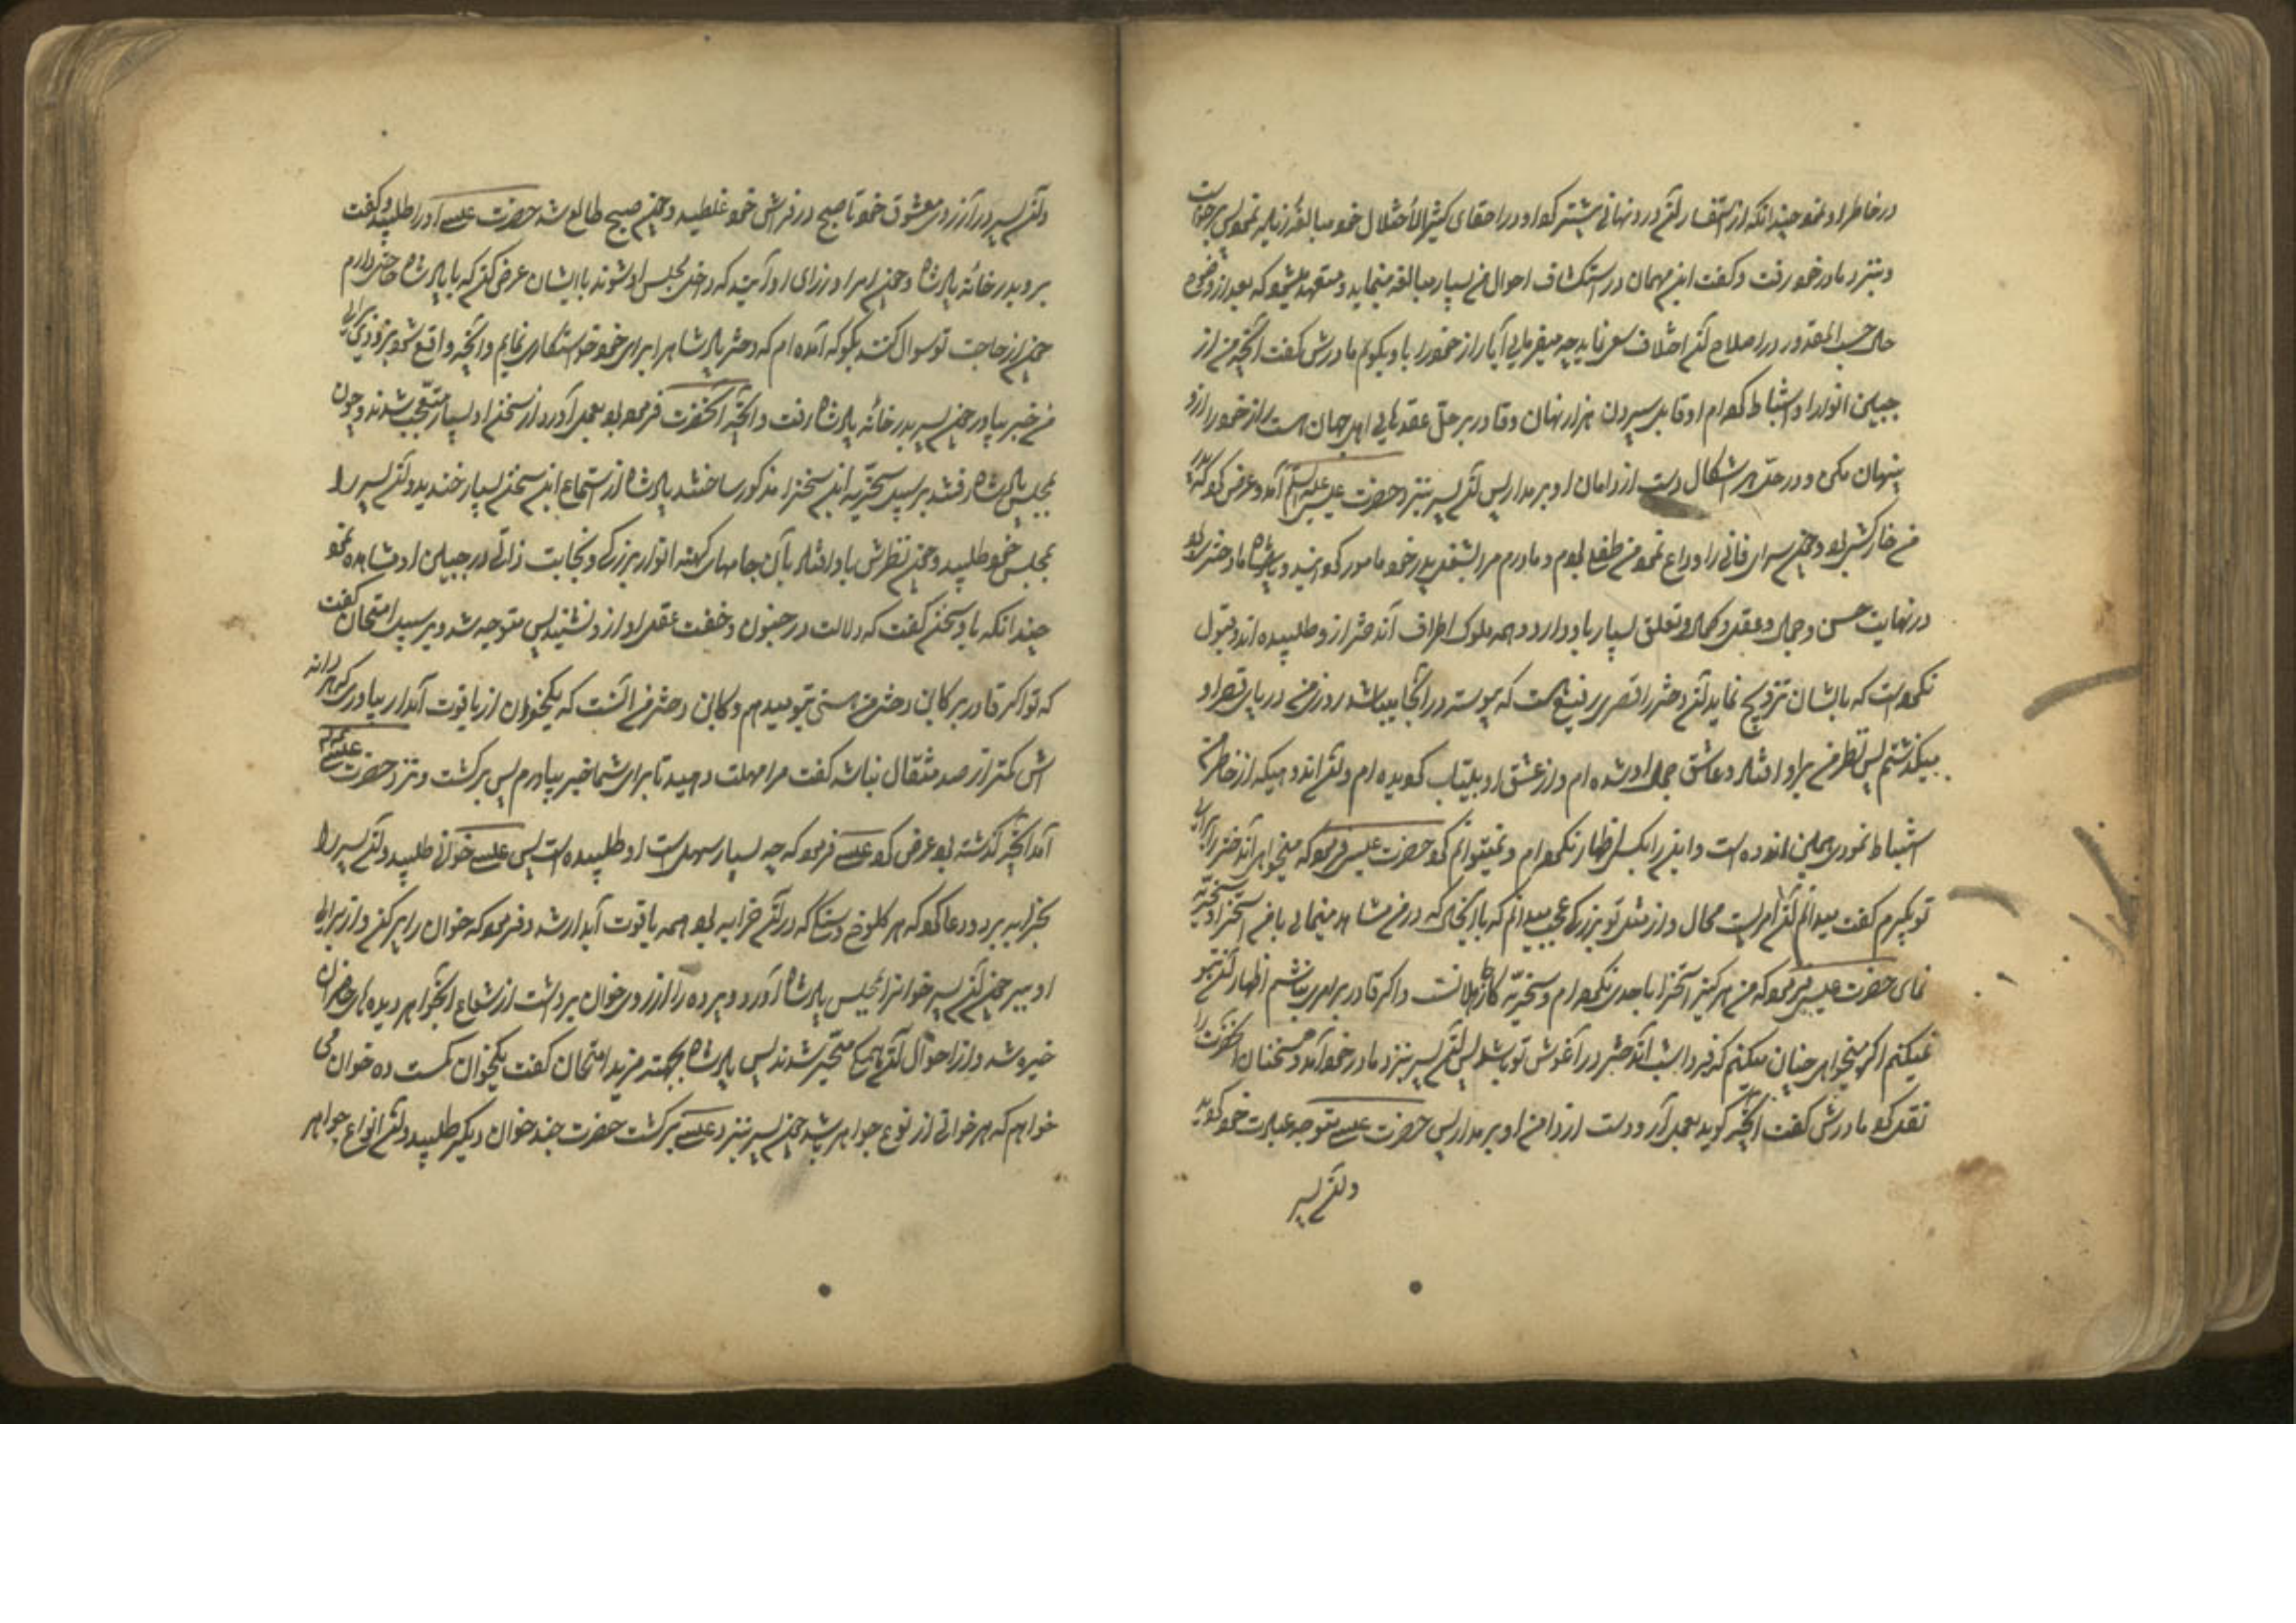 در خاطر او نمود چندانکه از استفسار آن درد نهانی بیشتر کرد او در اخفای کثیرالاختلال خود مبالغه زیاده نمود پس برخواست
و بنزد مادر خود رفت و گفت این مهمان در استکشاف احوال من بسیار مبالغه مینماید و متعهد میشود که بعد از وضوح
حال حسب المقدور در اصلاح آن اختلاف سعی نماید چه میفرمایی آیا راز خود را باو بگویم مادرش گفت آنچه من از
جبین انور او استنباط کرده ام او قابل سپردن هزار نهان و قادر بر حل عقدهای اهل جهان است راز خود را ازو
پنهان مکن و در حل هر اشکال دست از دامان او بر مدار پس آن پسر بنزد حضرت عیسی علیه السلم آمد و عرض کرد که پدر
من خارکش بود و چون سرای فانی را وداع نمود من طفل بودم و مادرم مرا بشغل پدر خود مامور گردانید و پادشاه ما دختری دارد
در نهایت حسن و جمال و عقل و کمال و تعلق بسیار باو دارد و همه ملوک اطراف آن دختر ازو طلبیده اند و قبول
نکرده است که بایشان تزویج نماید آن دختر را قصری رفیع هست که پیوسته در آنجا میباشد روزی من در پای قصر او
میگذشتم پس نظر من براو افتاد و عاشق جمال او شده ام و از عشق او بیتاب گردیده ام و آن اندوهیکه از خاطر من
استنباط نمودی همین اندوه است و این را بکسی اظهار نکرده ام و نمیتوانم کرد حضرت عیسی فرمود که میخواهی آن دختر را برای
تو بگیرم گفت میدانم آن امریست محال و از مثل تو بزرگی عجب میدانم که با آنحالی که در من مشاهده مینمایی با من استهزا و سخریه
نمای حضرت عیسی فرمود که من هرگز استهزا باحدی نکرده ام و سخریه کار جاهلانست و اگر قادر بر امری نباشم اظهار آن بتو
نمیکنم اگر میخواهی چنان میکنم که فردا شب آن دختر در آغوش تو باشد پس آن پسر بنزد مادر خود آمد و سخنان آنحضرت را
نقل کرد مادرش گفت آنچه گوید بعمل آر و دست از دامن او بر مدار پس حضرت عیسی متوجه عبادت خود گردید
و آن پسر
و آن پسر در آرزوی معشوق خود تا صبح در فراش خود غلطید و چون صبح طالع شد حضرت عیسی او را طلبید و گفت
برو بدر خانه پادشاه و چون امرا و وزرای او آیند که داخل مجلس او شوند با ایشان عرض کن که بپادشاه حاجتی دارم
چون از حاجت تو سوال کنند بگو که آمده ام که دختر پادشاه را برای خود خواستگاری نمایم و آنچه واقع شود بزودی برای
من خبر بیاور چون پسر بدر خانه پادشاه رفت و آنچه آنحضرت فرموده بود بعمل آورد از سخن او بسیار متعجب شدند و چون
بمجلس پادشاه رفتند بر سبیل سخریه این سخن را مذکور ساختند پادشاه از استماع این سخن بسیار خندید و آن پسر را
بمجلس خود طلبید و چون نظرش باو افتاد با آن جامهای کهنه انوار بزرگی و نجابت ذاتی در جبین او مشاهده نمود
چندانکه با او سخن گفت که دلالت در جنون و خفت عقل او ازو نشنید پس متوجه شد و بر سبیل امتحان گفت
که تو اگر قادر بر کابین دختر من هستی بتو میدهم و کابین دختر من آنست که یکخوان از یاقوت آبدار بیاوری که هر دانه
اش کمتر از صد مثقال نباشد گفت مرا مهلت دهید تا برای شما خبر بیاورم پس برگشت و نزد حضرت عیسی
آمد آنچه گذشته بود عرض کرد عیسی فرمود که چه بسیار سهل است او طلبیده است پس عیسی خوانی طلبید و آن پسر را
بخرابه برد و دعا کرد که هر کلوخ و سنگ که در آن خرابه بود همه یاقوت آبدار شد و فرمود که خوان را پر کن و از برای
او ببر چون آن پسر خوان را بمجلس پادشاه آورد و پرده را از روی خوان برداشت از شعاع آن جواهر دیده های حاضران
خیره شد و از احوال آن همگی متحیر شدند پس پادشاه بجهة مزید امتحان گفت یکخوان کمست ده خوان می
خواهم که هر خوانی از نوع جواهر باشد چون پسر بنزد عیسی برگشت حضرت چند خوان دیگر طلبید و آن انواع جواهر